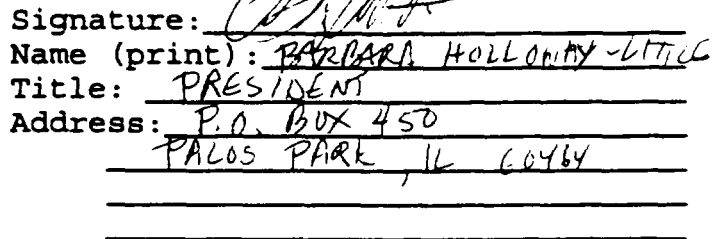 Signature:
Name (print): BARBARA HOLLOWAY-LITTLE
Title: PRESIDENT
Address: P.O. BOX 450
PALOS PARK, IL 60464